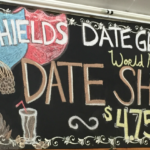 SHIELDS DATE G
World
DATE SH
$4.75